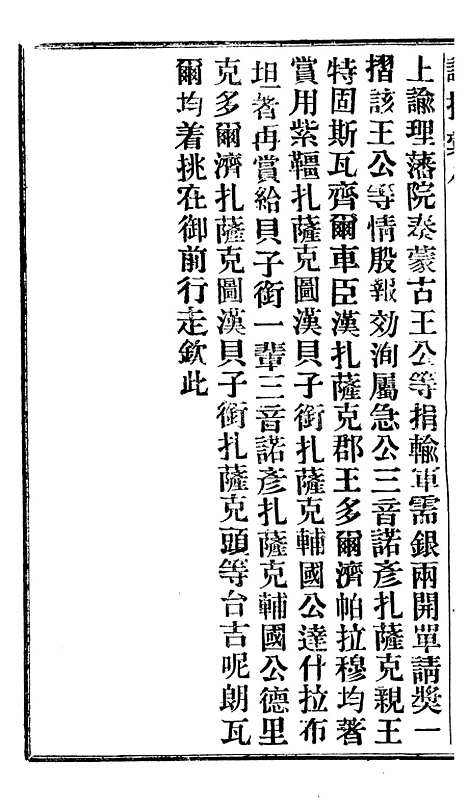 上諭理藩院奏蒙古王公等捐輸軍需銀兩開單請獎一
摺該王公等情殷報効洵屬急公三音諾彥扎薩克親王
特固斯瓦齊爾車臣漢扎薩克郡王多爾濟帕拉穆均著
賞用紫韁扎薩克圖漢貝子銜扎薩克輔國公達什拉布
坦著再賞給貝子銜一輩三音諾彥扎薩克輔國公德里
克多爾濟扎薩克圖漢貝子銜扎薩克頭等台吉呢朗瓦
爾均着挑在御前行走欽此